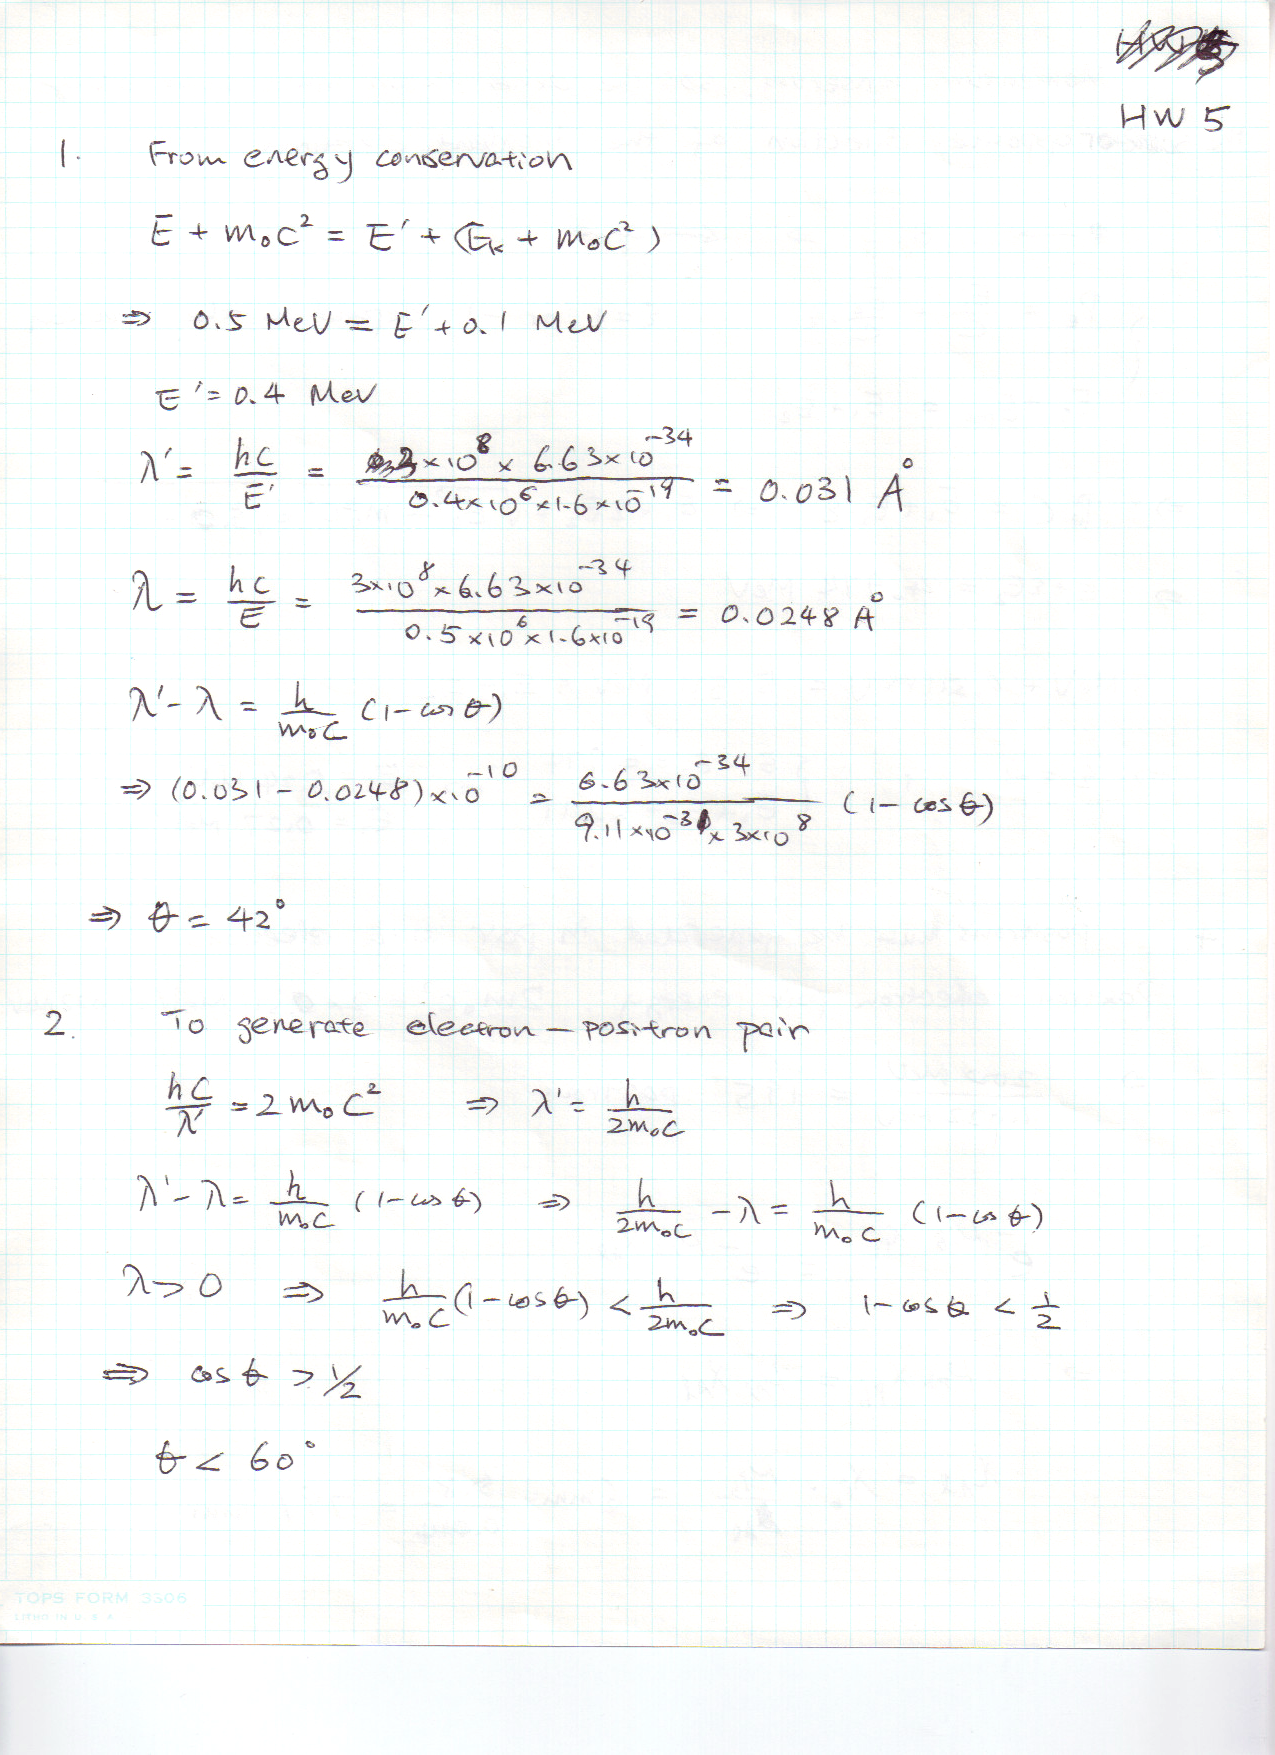 HW 5
1. From energy conservation
E + m₀c² = E′ + (Eₖ + m₀c²)
⇒ 0.5 MeV = E′ + 0.1 MeV
E′ = 0.4 MeV
λ′ = hc/E′ = 3×10⁸ × 6.63×10⁻³⁴ / 0.4×10⁶×1.6×10⁻¹⁹ = 0.031 Å
λ = hc/E = 3×10⁸×6.63×10⁻³⁴ / 0.5×10⁶×1.6×10⁻¹⁹ = 0.0248 Å
λ′ - λ = h/m₀c (1 - cos θ)
⇒ (0.031 - 0.0248)×10⁻¹⁰ = 6.63×10⁻³⁴ / 9.11×10⁻³¹×3×10⁸ (1 - cos θ)
⇒ θ = 42°
2. To generate electron - positron pair
hc/λ′ = 2m₀c² ⇒ λ′ = h/2m₀c
λ′ - λ = h/m₀c (1 - cos θ) ⇒ h/2m₀c - λ = h/m₀c (1 - cos θ)
λ > 0 ⇒ h/m₀c (1 - cos θ) < h/2m₀c ⇒ 1 - cos θ < 1/2
⇒ cos θ > 1/2
θ < 60°
TOPS FORM 3306
LITHO IN U. S. A.